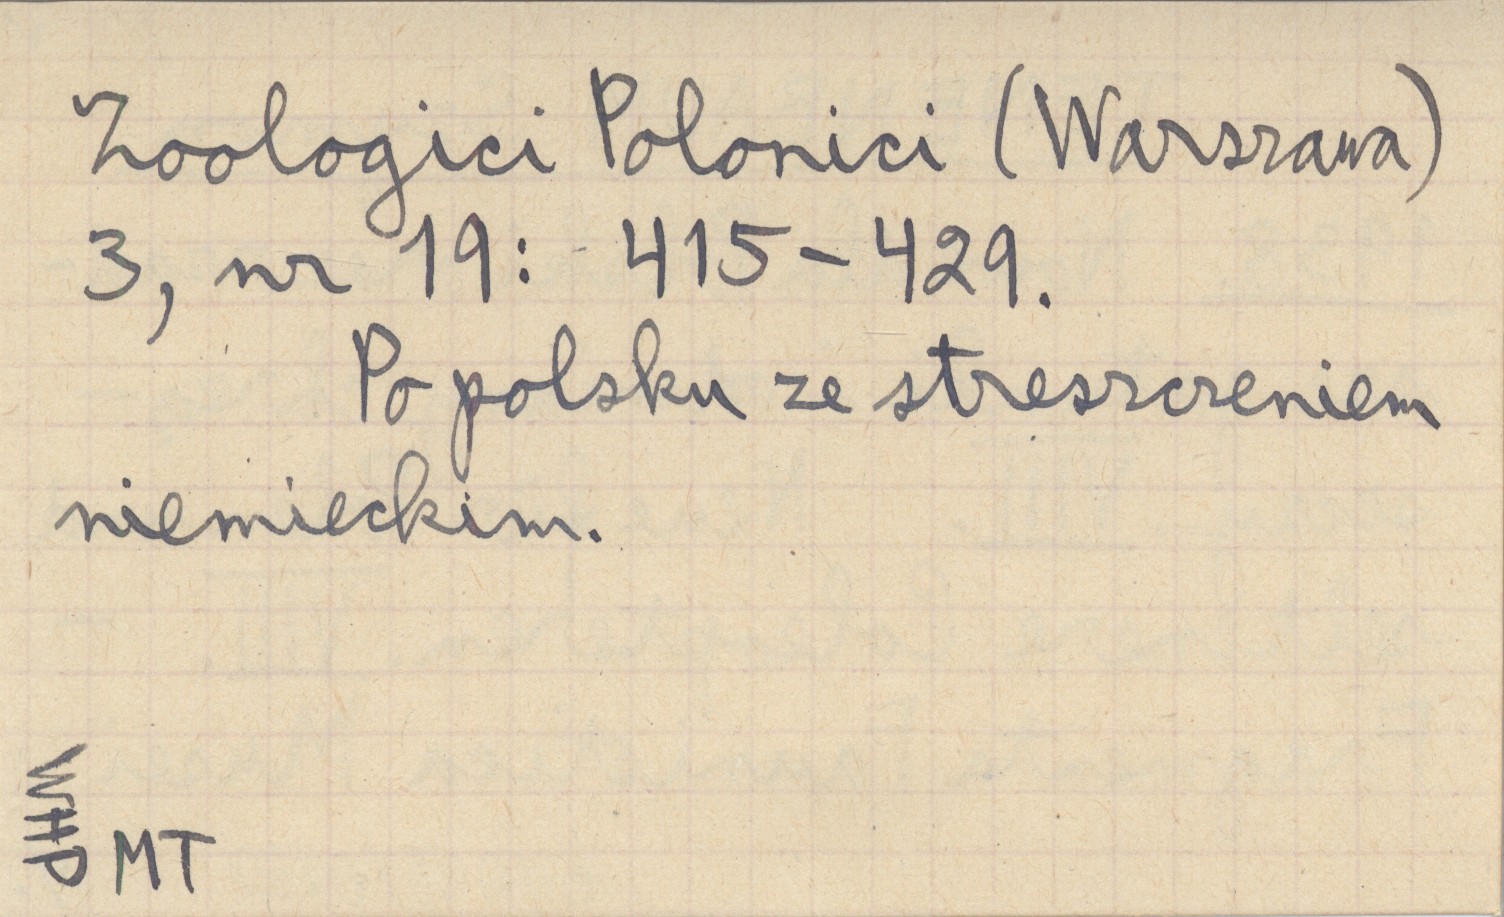 Zoologici Polonici (Warszawa)
3, nr 19: 415-429.
Po polsku ze streszczeniem
niemieckim.
WHP
MT